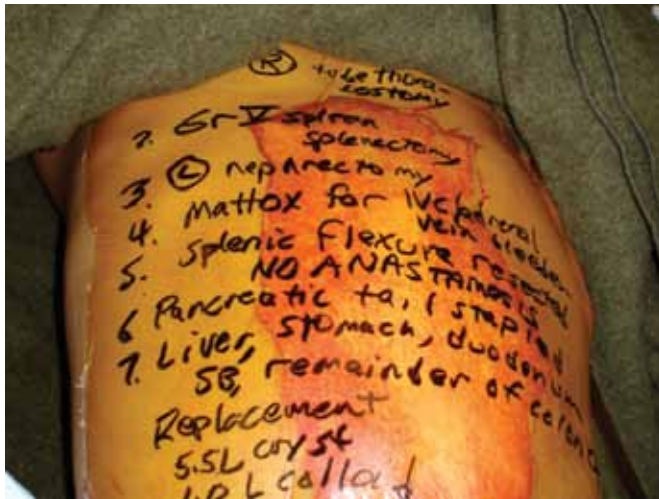 R tube thora-
costomy
2. Gr V spleen
splenectomy
3. L nephrectomy
4. Mattox for IVC/adrenal
vein bleeder
5. Splenic flexure resected
NO ANASTAMOSIS
6 Pancreatic tail stapled
7. Liver, stomach, duodenum
SB, remainder of colon
Replacement
5.5L cryst
L colloid